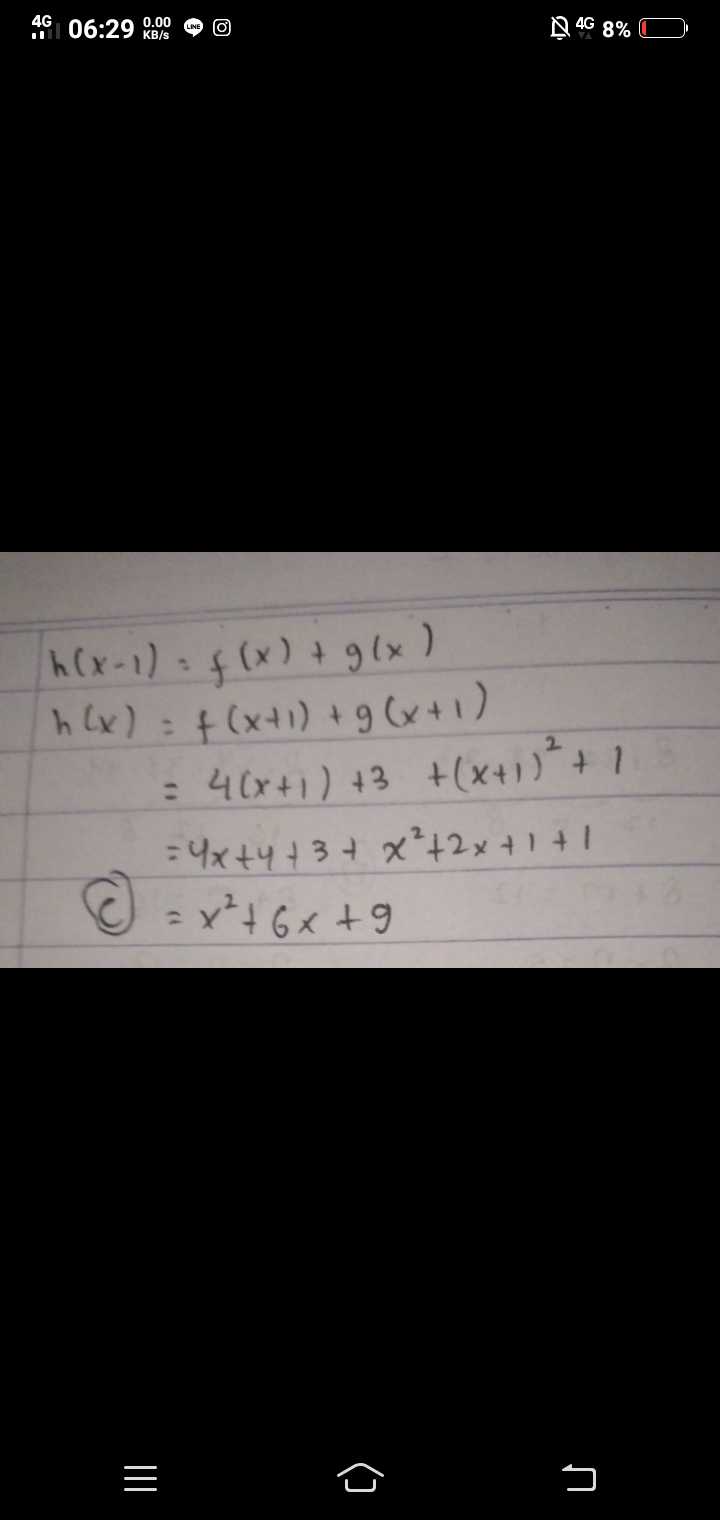 4G 06:29 0.00 KB/s LINE 4G 8%
h(x-1) = f(x) + g(x)
h(x) = f(x+1) + g(x+1)
= 4(x+1) +3 +(x+1)² + 1
=4x+4+3+ x²+2x+1+1
(C) = x²+6x+9